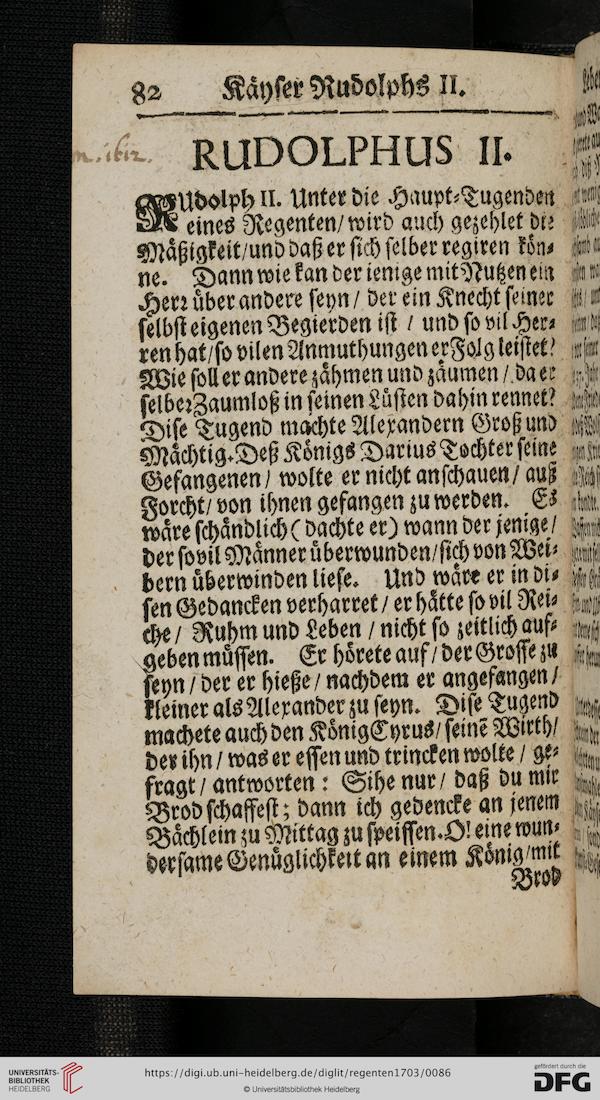 82 Käyser Rudolphs II.
m. 1612.
RUDOLPHUS II.
RUdolph II. Unter die Haupt-Tugenden
eines Regenten/ wird auch gezehlet die
Mäßigkeit/ und daß er sich selber regiren kön-
ne. Dann wie kan der ienige mit Nutzen ein
Herr über andere seyn / der ein Knecht seiner
selbst eigenen Begierden ist / und so vil Her-
ren hat/ so vilen Anmuthungen er Folg leistet?
Wie soll er andere zähmen und zäumen / da er
selber Zaumloß in seinen Lüsten dahin rennet?
Dise Tugend machte Alexandern Groß und
Mächtig. Deß Königs Darius Tochter seine
Gefangenen / wolte er nicht anschauen / auß
Forcht/ von ihnen gefangen zu werden. Es
wäre schändlich ( dachte er ) wann der jenige /
der sovil Männer überwunden/ sich von Wei-
bern überwinden liese. Und wäre er in di-
sen Gedancken verharret / er hätte so vil Rei-
che / Ruhm und Leben / nicht so zeitlich auf-
geben müssen. Er hörete auf / der Grosse zu
seyn / der er hieße / nachdem er angefangen /
kleiner als Alexander zu seyn. Dise Tugend
machete auch den König Cyrus/ seinē Wirth/
der ihn / was er essen und trincken wolte / ge-
fragt / antworten : Sihe nur / daß du mir
Brod schaffest ; dann ich gedencke an jenem
Bächlein zu Mittag zu speissen. O! eine wun-
dersame Genüglichkeit an einem König/ mit
Brod
UNIVERSITÄTS-
BIBLIOTHEK
HEIDELBERG
https://digi.ub.uni-heidelberg.de/diglit/regenten1703/0086
© Universitätsbibliothek Heidelberg
gefördert durch die
DFG